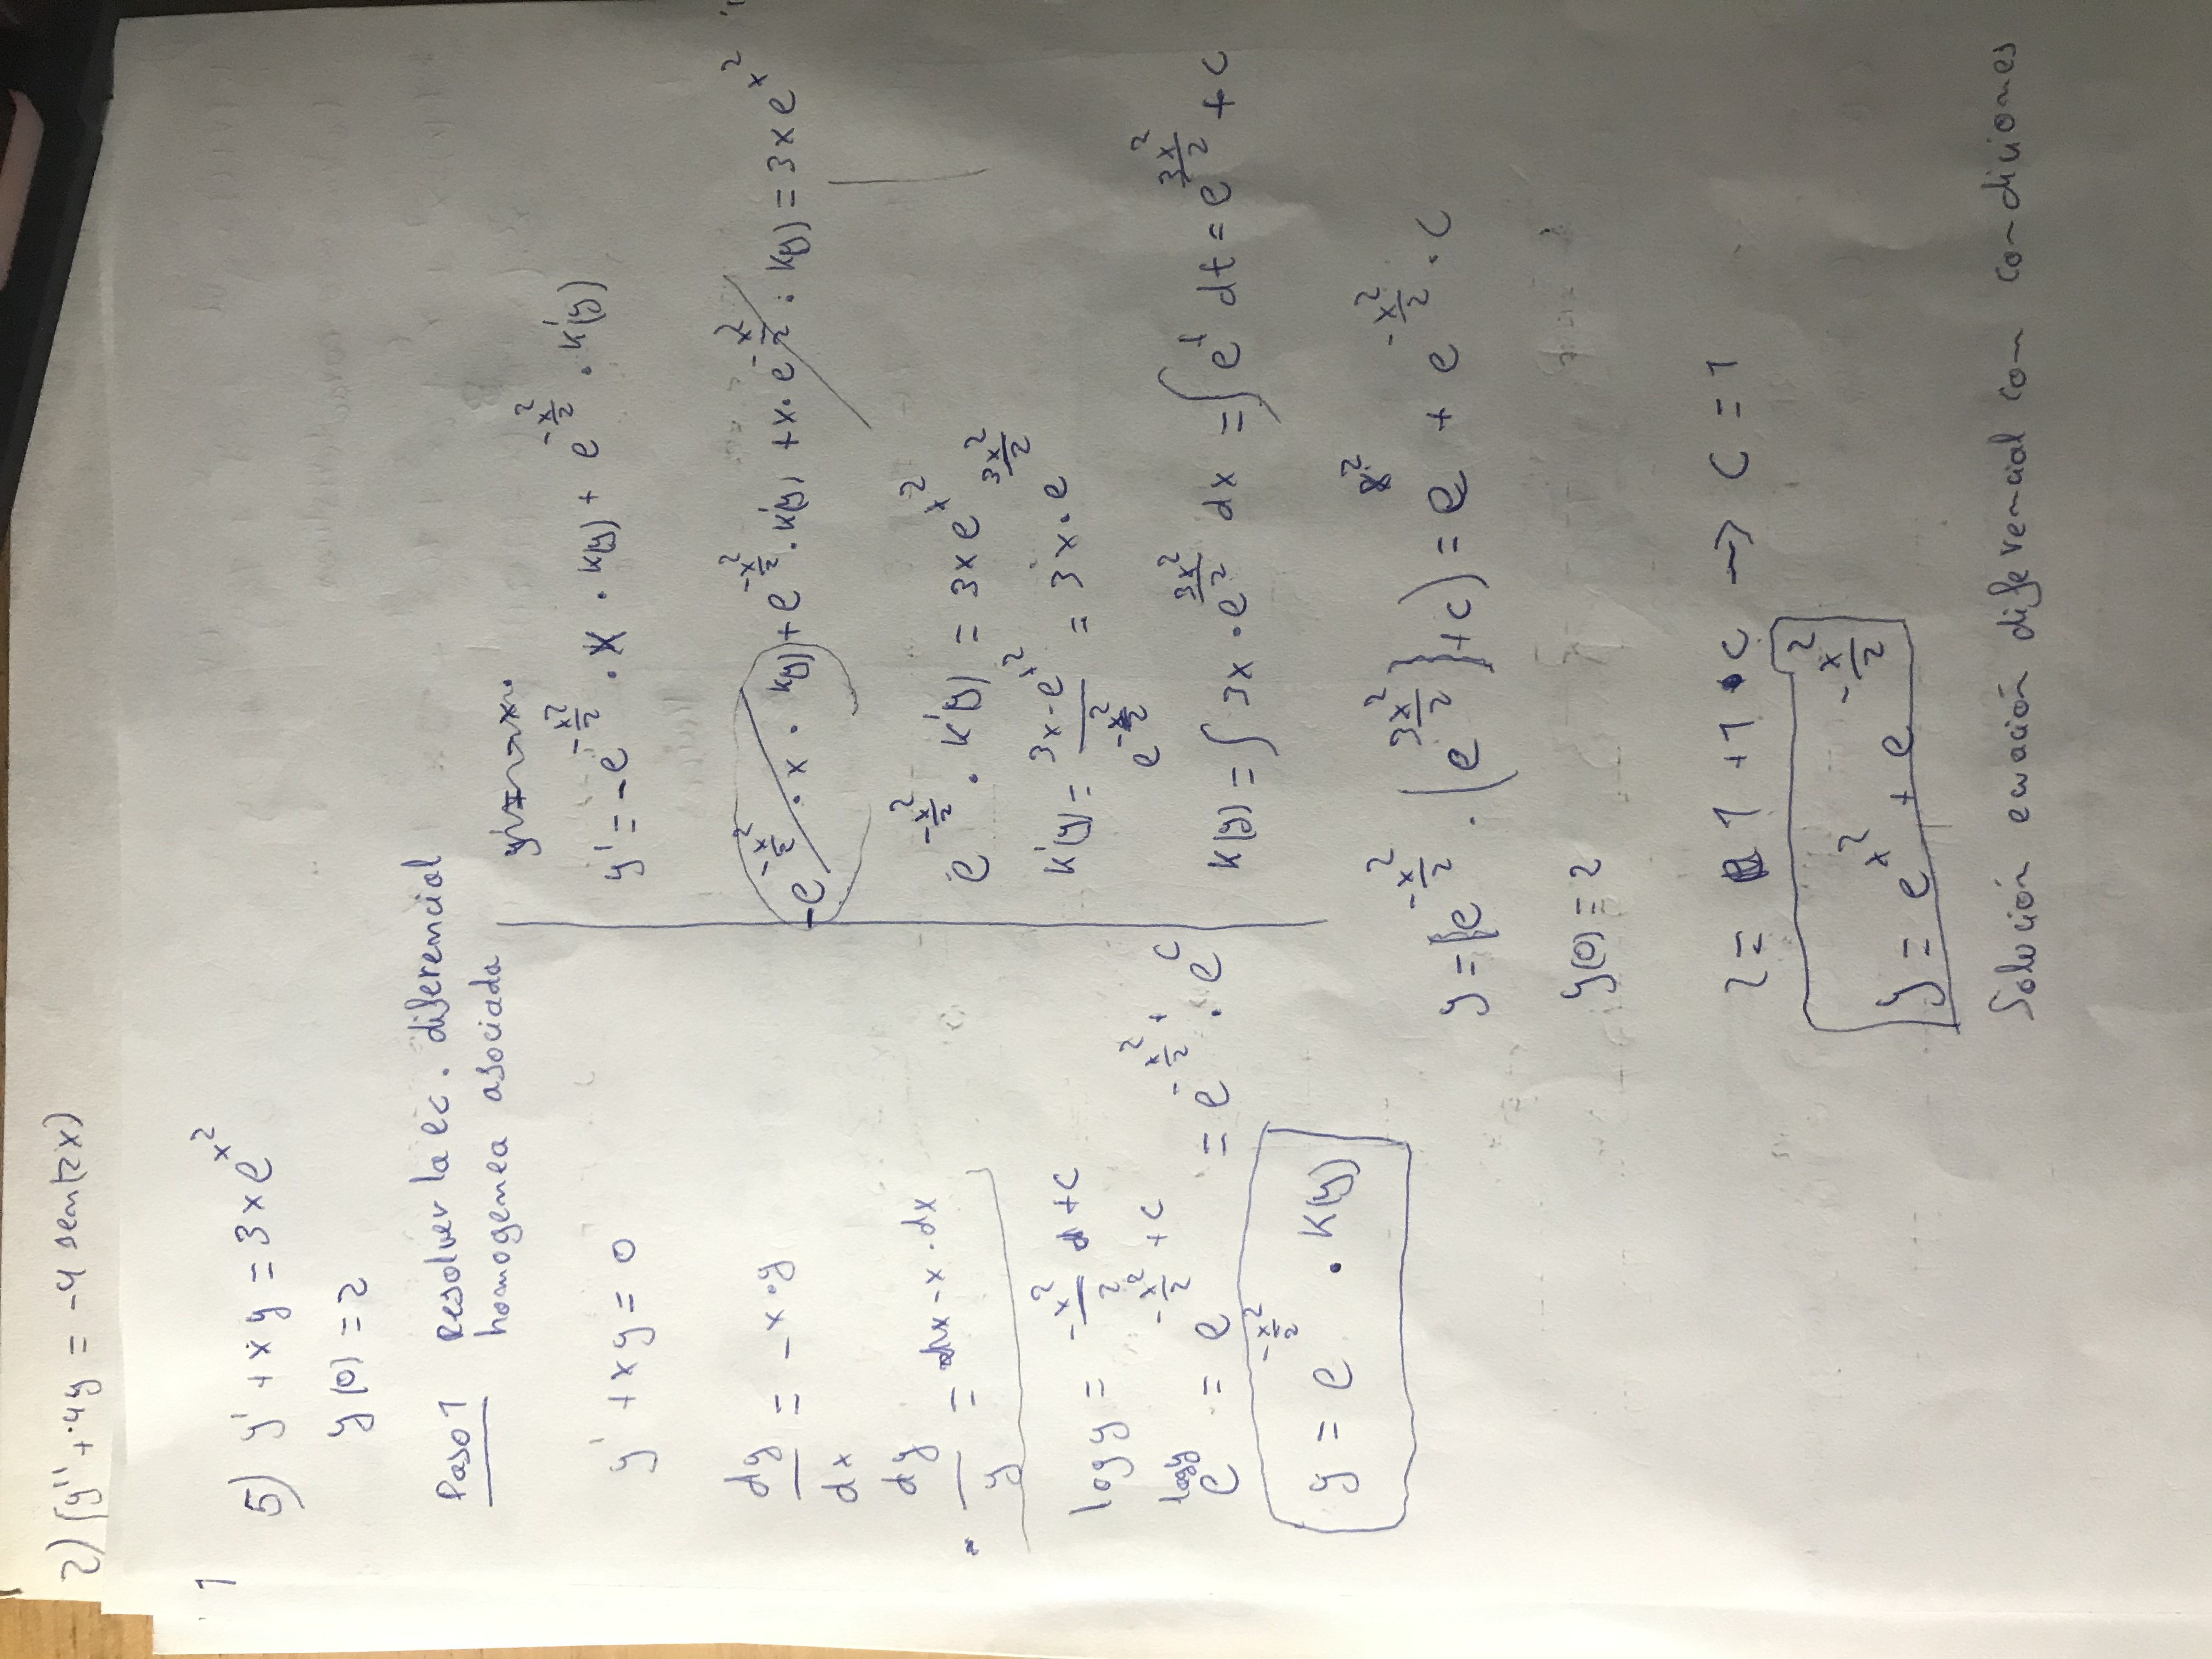 2) (y'' + 4y = -4 sen(2x)
1
5) y' + xy = 3xe^{x^2}
y(0) = 2
Paso 1 Resolver la ec. diferencial
homogenea asociada
y' + xy = 0
dy/dx = -x·y
dy/y = -x·dx
log y = -x^2/2 + c
e^{log y} = e^{-x^2/2 + c} = e^{-x^2/2} · e^c
y = e^{-x^2/2} · K(y)
y' = -e^{-x^2/2} · x · K(y) + e^{-x^2/2} · K'(y)
-e^{-x^2/2} · x · K(y) + e^{-x^2/2} · K'(y) + x · e^{-x^2/2} · K(y) = 3xe^{x^2}
e^{-x^2/2} · K'(y) = 3xe^{x^2}
K'(y) = 3x·e^{x^2}/e^{-x^2/2} = 3x·e^{3x^2/2}
K(y) = ∫ 3x·e^{3x^2/2} dx = ∫ e^t dt = e^{3x^2/2} + c
y = [e^{-x^2/2} · (e^{3x^2/2}] + c) = e^{x^2} + e^{-x^2/2} · c
y(0) = 2
2 = 1 + 1·c → c = 1
y = e^{x^2} + e^{-x^2/2}
Solución ecuación diferencial con condiciones